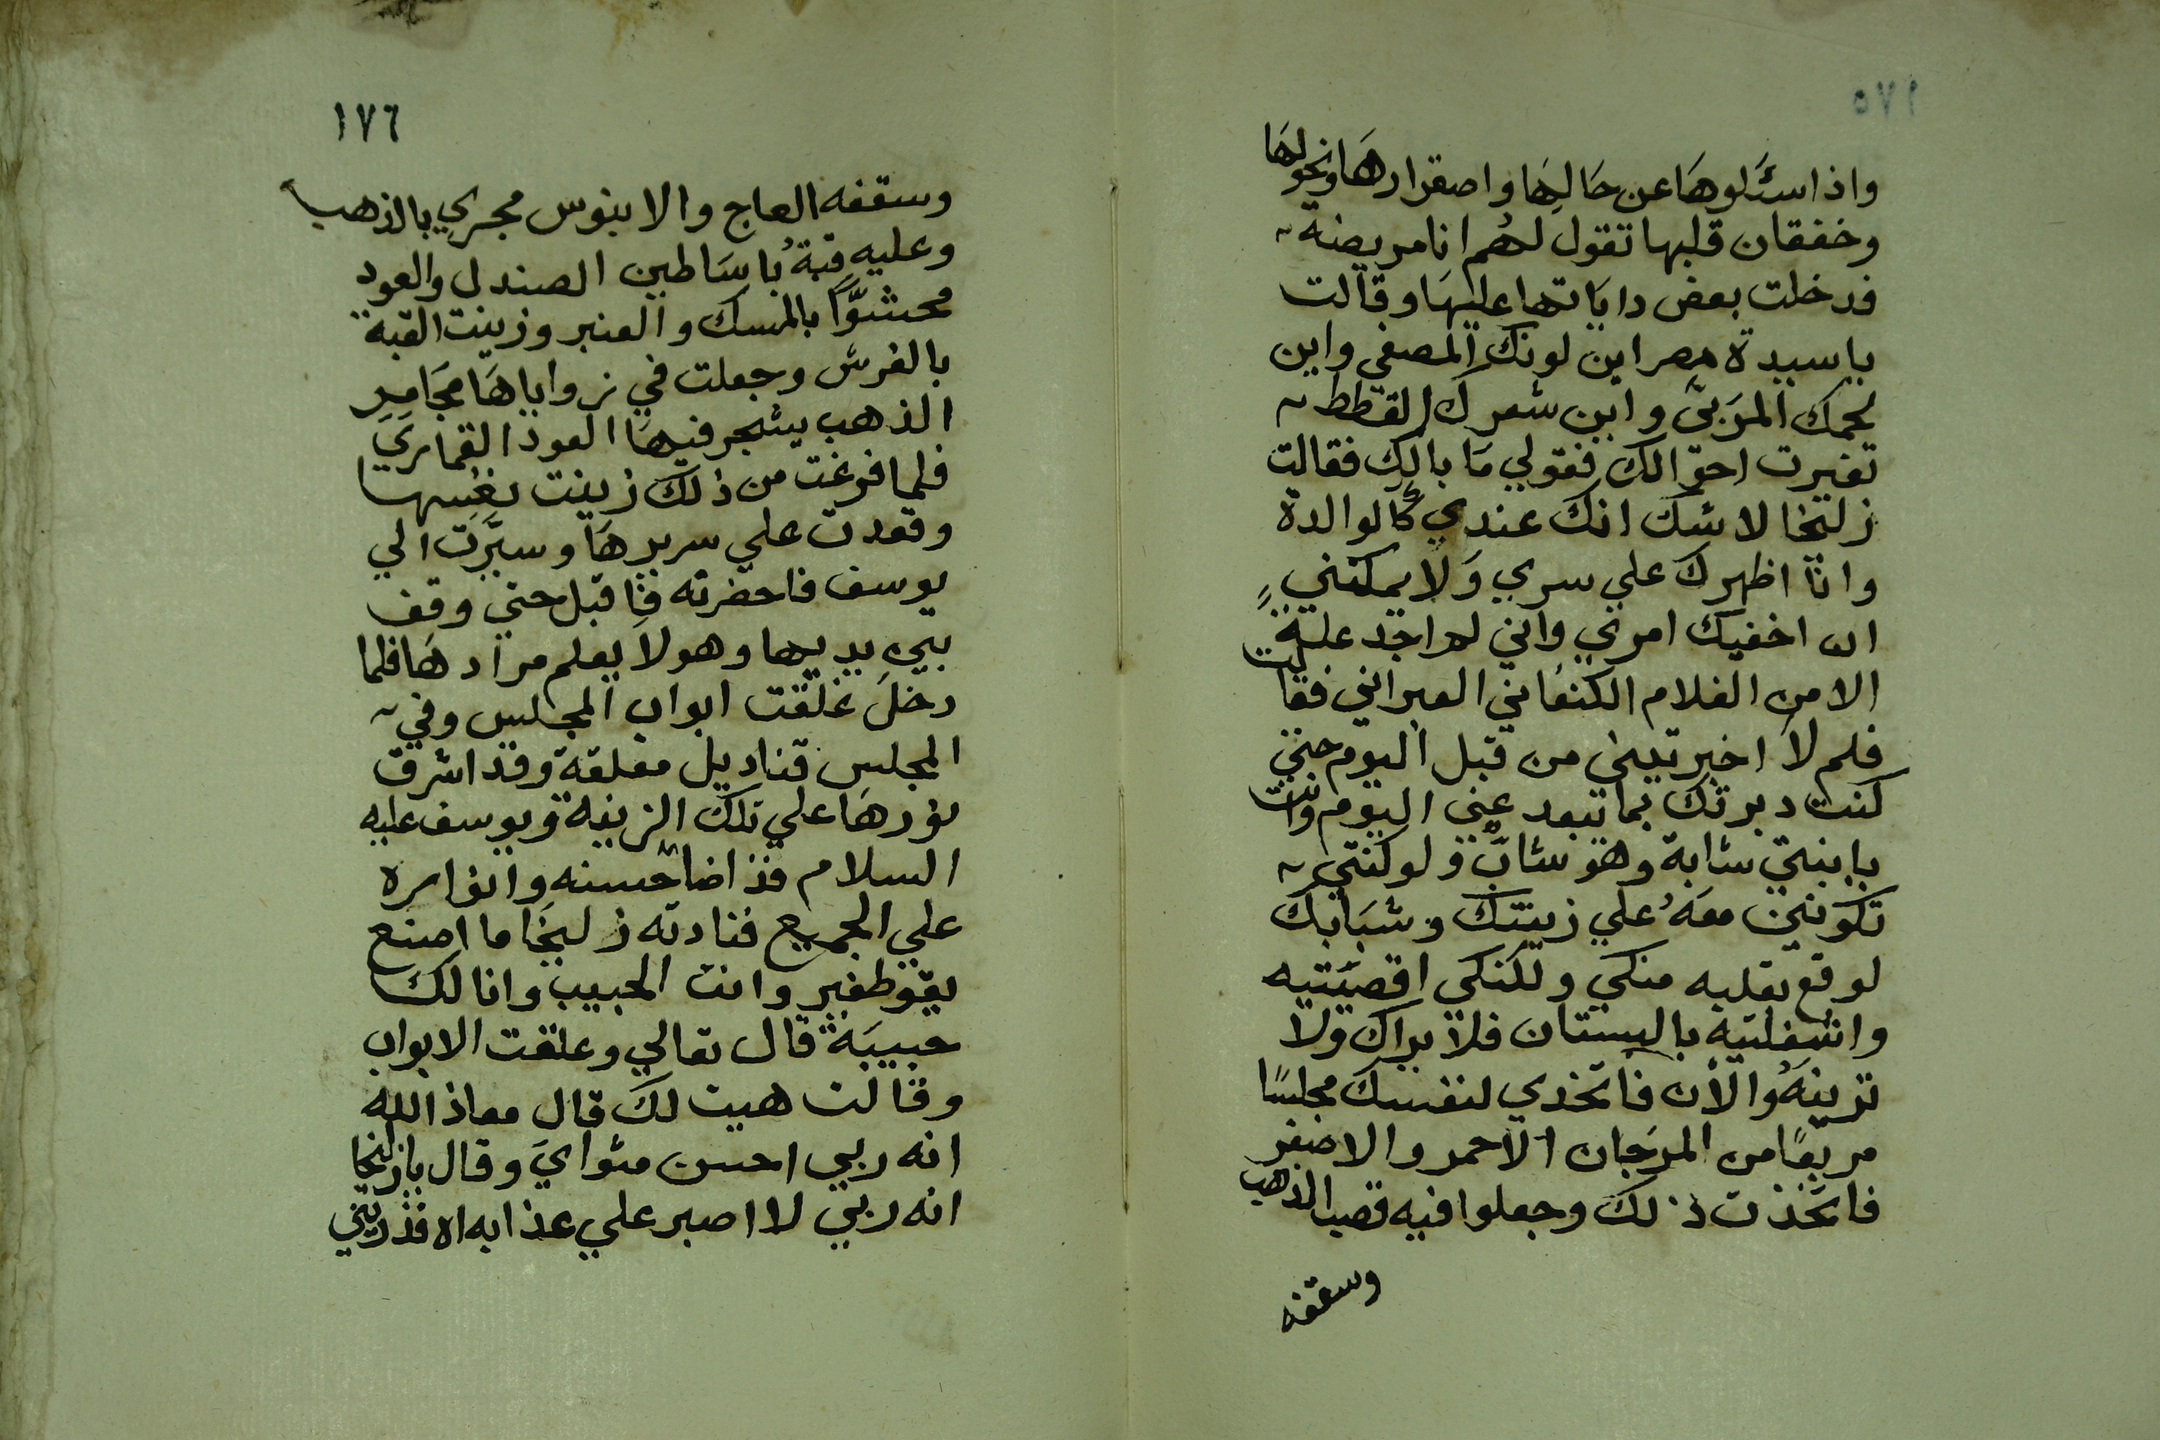 ١٧٥
واذا سئلوها عن حالها واصفرارها ونحولها
وخفقان قلبها تقول لهم انا مريضة
فدخلت بعض داياتها عليها وقالت
يا سيدة مصر اين لونك المصفي واين
لحمك المربي واين شعرك القطط
تغيرت احوالك فقولي ما بالك فقالت
زليخا لا شك انك عندي كالوالدة
وانا اظهرك علي سري ولا يمكنني
ان اخفيك امري واني لم اجد علة
الا من الغلام الكنعاني العبراني فقالت
فلم لا اخبرتيني من قبل اليوم حتي
كنت دبرتك بما تبعد عني اليوم وانت
يا بنيتي شابة وهو شاب ولو كنتي
تكونين معه علي زينتك وشبابك
لوقع بقلبه منكي ولكنكي اقصيتيه
واشغلتيه بالبستان فلا يراك ولا
ترينه والأن فاتخذي لنفسك مجلسا
مربعا من المرجان الاحمر والاصفر
فاتخذت ذلك وجعلوا فيه قصب الذهب
وسقفه
١٧٦
وسقفه العاج والابنوس مجري بالذهب
وعليه قبة باساطين الصندل والعود
محشوا بالمسك والعنبر وزينت القبة
بالفرش وجعلت في زواياها مجامر
الذهب يشجر فيها العود القماري
فلما فرغت من ذلك زينت نفسها
وقعدت علي سريرها وسيرت الي
يوسف فاحضرته فاقبل حتي وقف
بين يديها وهو لا يعلم مرادها فلما
دخل غلقت ابواب المجلس وفي
المجلس قناديل معلقة وقد اشرق
نورها علي تلك الزينة ويوسف عليه
السلام قد اضا حسنه وانواره
علي الجميع فنادته زليخا ما اصنع
بقوطفير وانت الحبيب وانا لك
حبيبة قال تعالي وغلقت الابواب
وقالت هيت لك قال معاذ الله
انه ربي احسن مثواي وقال يا زليخا
انه ربي لا اصبر علي عذابه اه فذريني